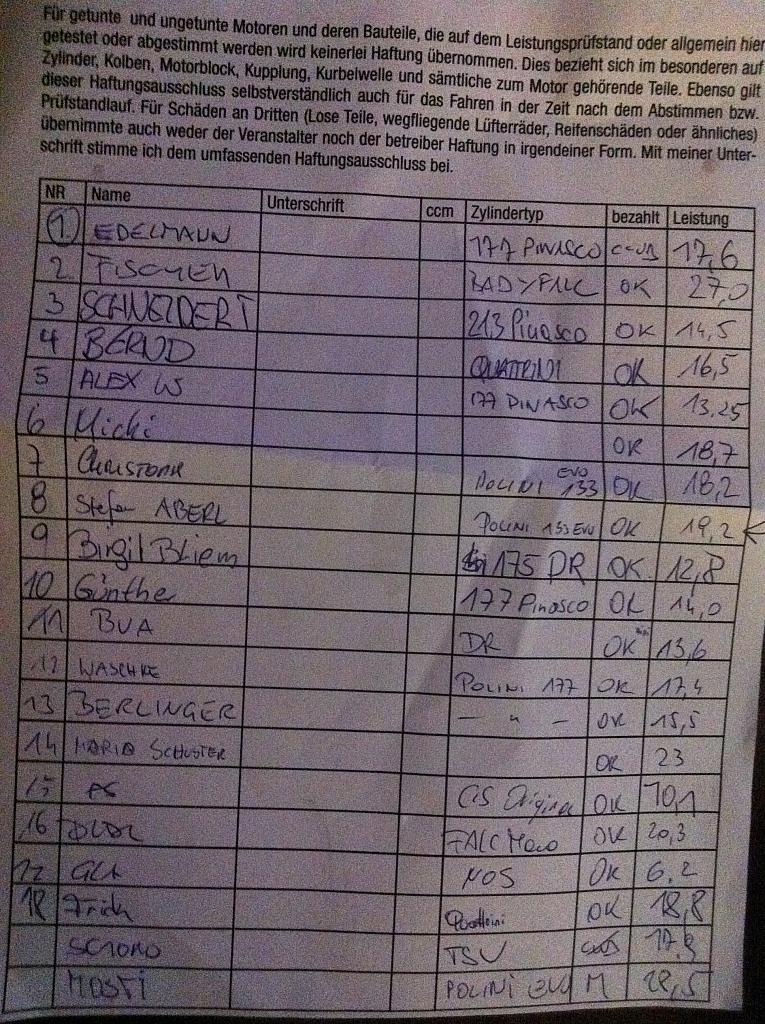 Für getunte und ungetunte Motoren und deren Bauteile, die auf dem Leistungsprüfstand oder allgemein hier
getestet oder abgestimmt werden wird keinerlei Haftung übernommen. Dies bezieht sich im besonderen auf
Zylinder, Kolben, Motorblock, Kupplung, Kurbelwelle und sämtliche zum Motor gehörende Teile. Ebenso gilt
dieser Haftungsausschluss selbstverständlich auch für das Fahren in der Zeit nach dem Abstimmen bzw.
Prüfstandlauf. Für Schäden an Dritten (Lose Teile, wegfliegende Lüfterräder, Reifenschäden oder ähnliches)
übernimmte auch weder der Veranstalter noch der betreiber Haftung in irgendeiner Form. Mit meiner Unter-
schrift stimme ich dem umfassenden Haftungsausschluss bei.
NR Name Unterschrift ccm Zylindertyp bezahlt Leistung
1. EDELMANN 177 PINASCO 17,6
2 FISCHER FALC OK 27,0
3 SCHNEIDERT 213 Pinasco OK 14,5
4 BERND QUATTRINI OK 16,5
5 ALEX W 177 PINASCO OK 13,25
6 Michi OK 18,7
7 CHRISTOPH POLINI EVO 133 OK 18,2
8 Stefan ABERL POLINI 133 EVO OK 19,2
9 Birgil Bliem 175 DR OK 12,8
10 Günthe 177 Pinasco OK 14,0
11 BUA DR OK 13,6
12 WASCHKE POLINI 177 OK 17,4
13 BERLINGER — " — OK 15,5
14 MARIO SCHUSTER OK 23
15 Original OK 10,1
16 FALC OK 20,3
17 NOS OK 6,2
18 Quattrini OK 18,8
TSV
POLINI EVO M 28,5